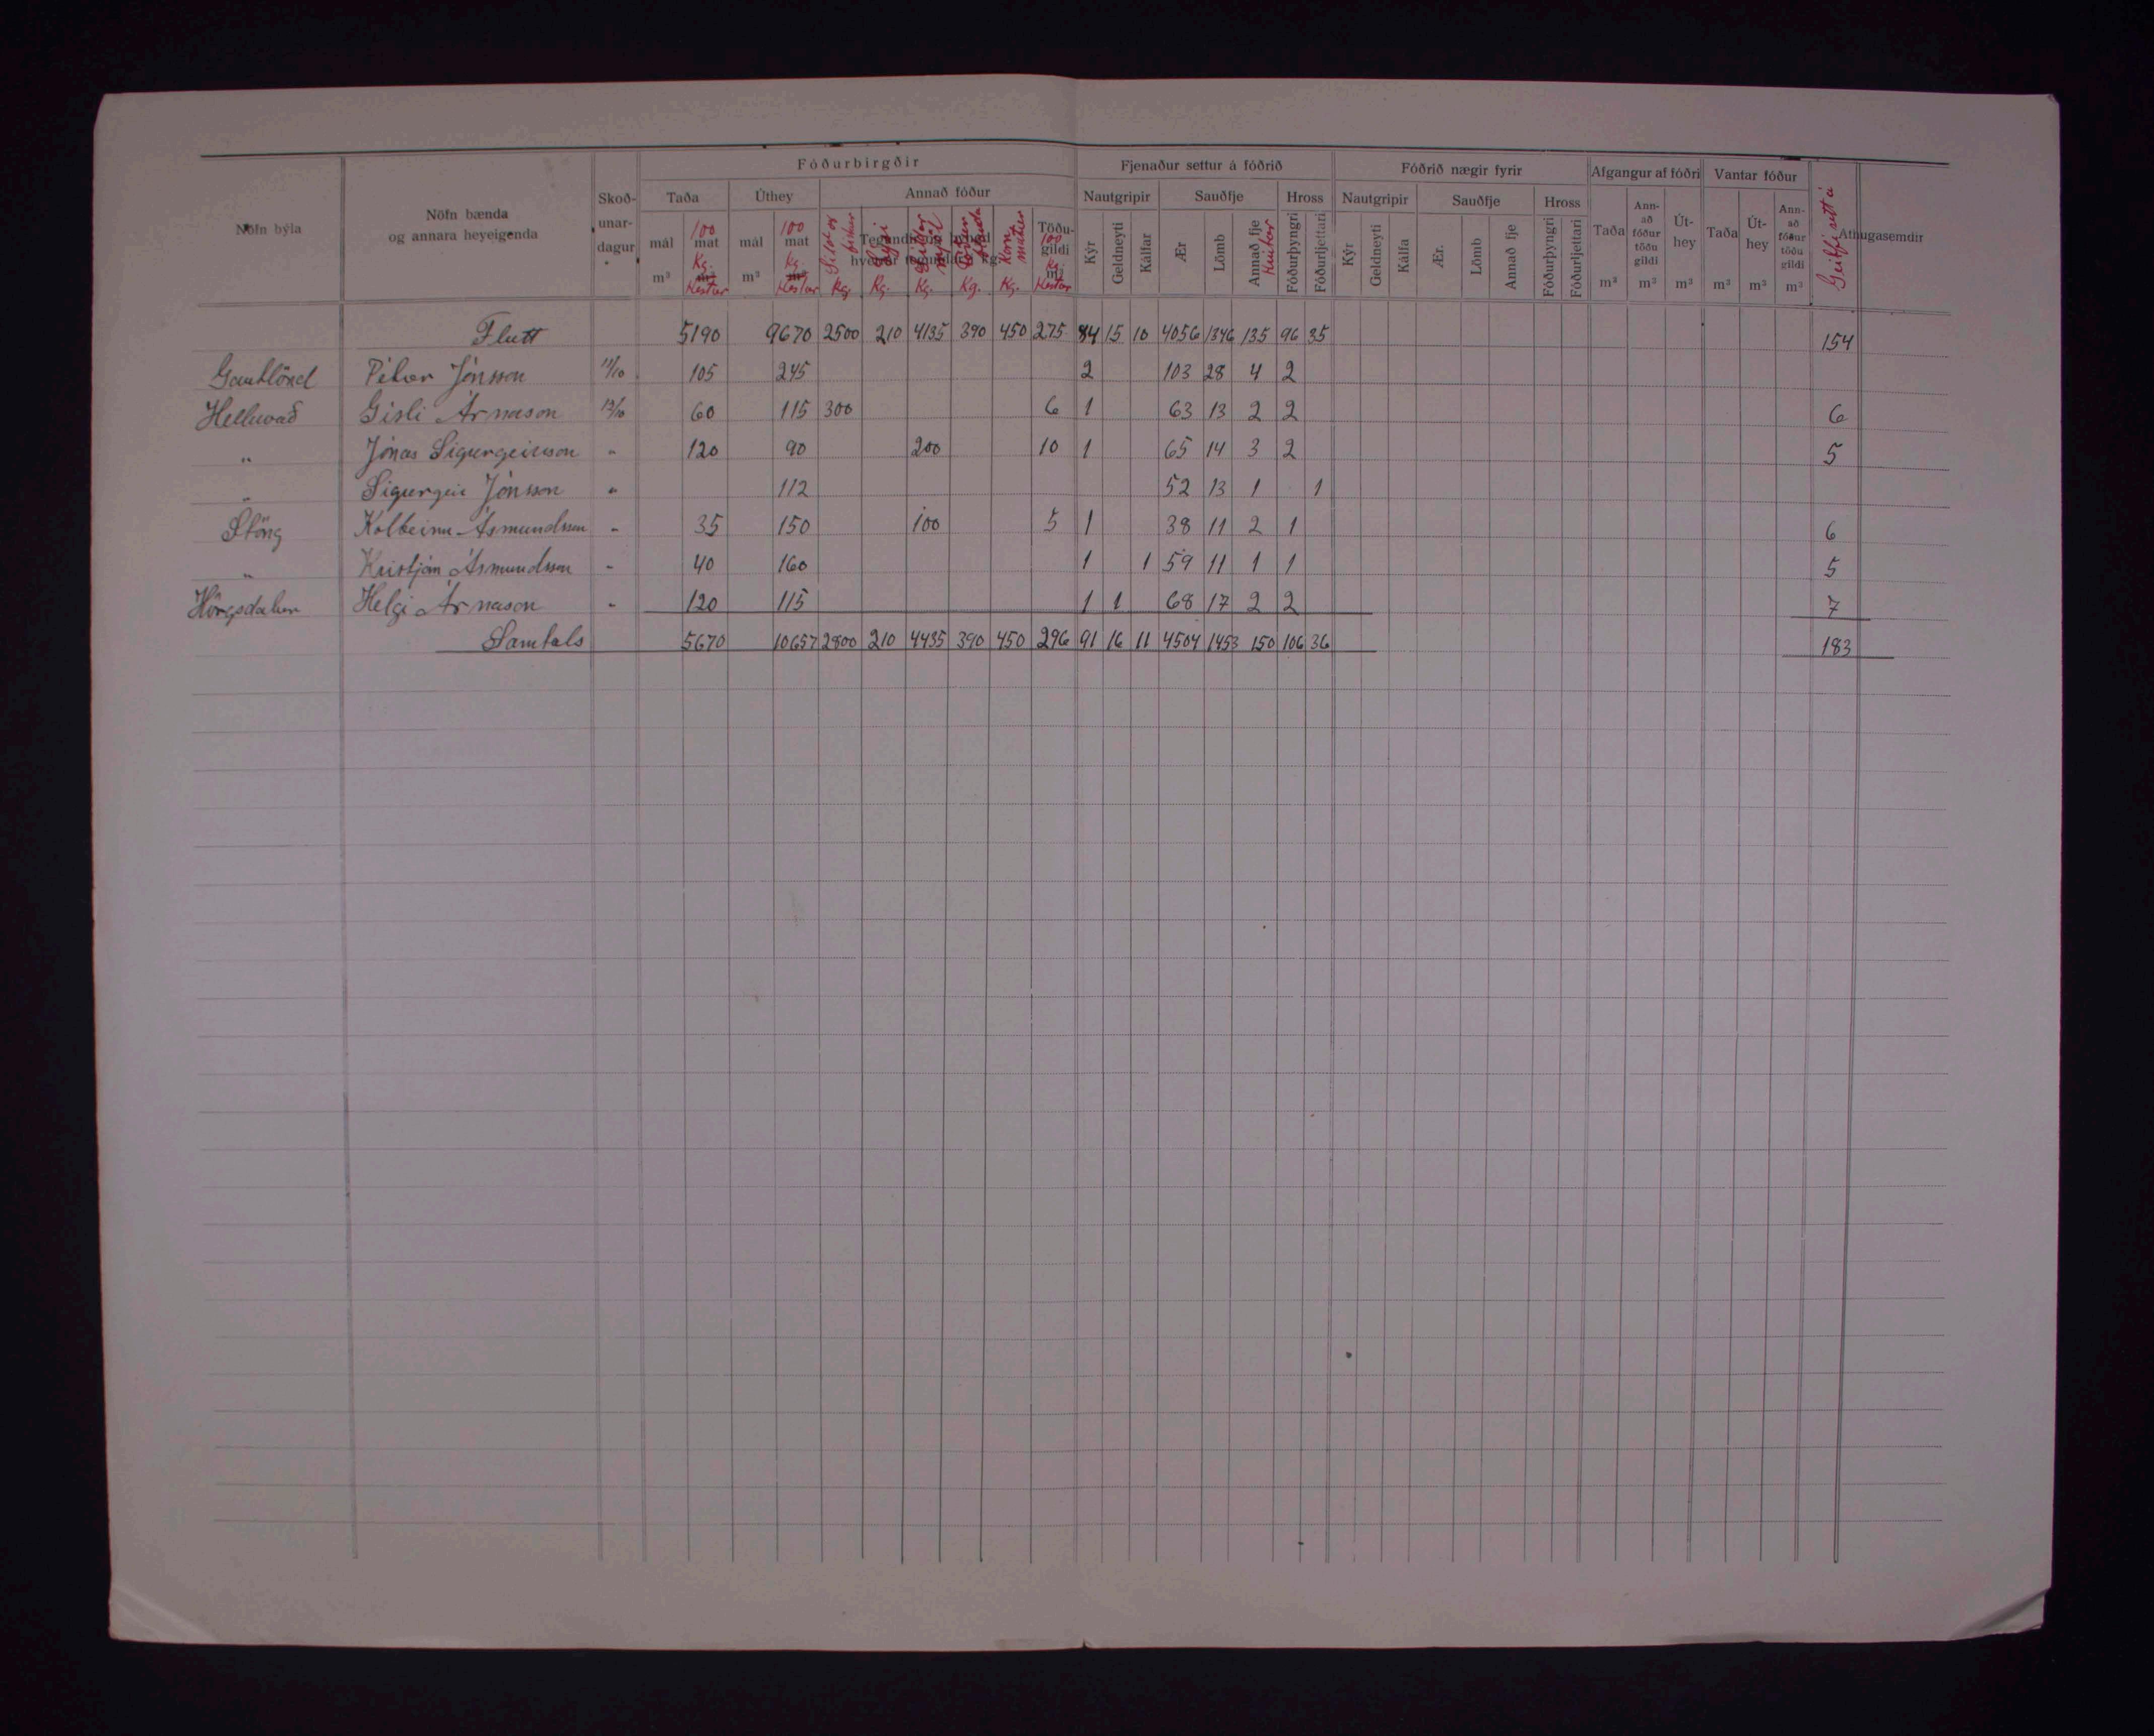 Fóðurbirgðir Fjenaður settur á fóðrið Fóðrið nægir fyrir Afgangur af fóðri Vantar fóður
Nöfn býla Nöfn bænda og annara heyeigenda Skoð-unar-dagur Taða Úthey Annað fóður Nautgripir Sauðfje Hross Nautgripir Sauðfje Hross Athugasemdir
mál m³ 100 mat Kg. Hestar mál m³ 100 mat Kg. Hestar Kg. Kg. Kg. Kg. Kg. Töðu-gildi 100 Kg. m³ Hestar Kýr Geldneyti Kálfar Ær Lömb Annað fje Hrútar Fóðurþyngri Fóðurljettari Kýr Geldneyti Kálfa Ær. Lömb Annað fje Fóðurþyngri Fóðurljettari Taða m³ Ann-að fóður töðu gildi m³ Út-hey m³ Taða m³ Út-hey m³ Ann-að fóður töðu gildi m³
Flutt 5190 9670 2500 210 4135 390 450 275 84 15 10 4056 1346 135 96 35 154
Gautlönd Pétur Jónsson 11/10 105 245 2 103 28 4 2
Helluvað Gísli Árnason 12/10 60 115 300 6 1 63 13 2 2 6
" Jónas Sigurgeirsson " 120 90 200 10 1 65 14 3 2 5
" Sigurgeir Jónsson " 112 52 13 1 1
Stöng Kolbeinn Ásmundsson " 35 150 100 5 1 38 11 2 1 6
" Kristján Ásmundsson " 40 160 1 1 59 11 1 1 5
Hörgsdalur Helgi Árnason " 120 115 1 1 68 17 2 2 7
Samtals 5670 10657 2800 210 4435 390 450 296 91 16 11 4504 1453 150 106 36 183